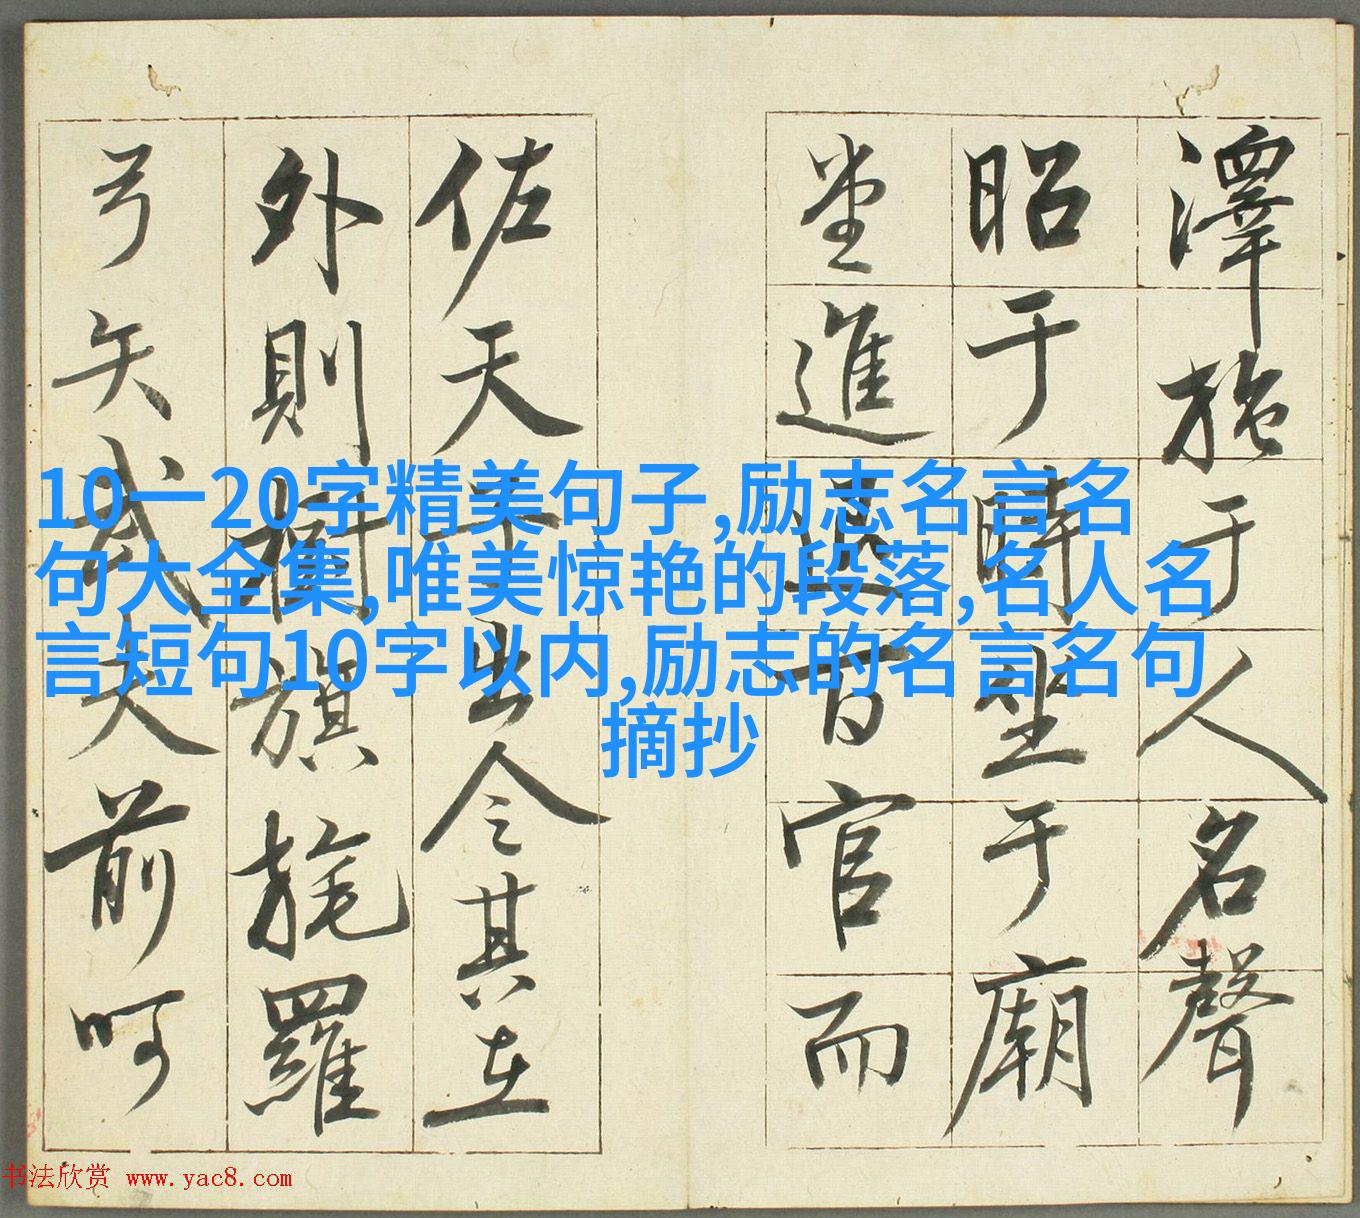 澤施于人名聲
昭于時坐于廟
堂進退百官而
佐天子出令其在
外則樹旗旄羅
弓矢武夫前呵
10一20字精美句子,励志名言名
句大全集,唯美惊艳的段落,名人名
言短句10字以内,励志的名言名句
摘抄
书法欣赏 www.yac8.com